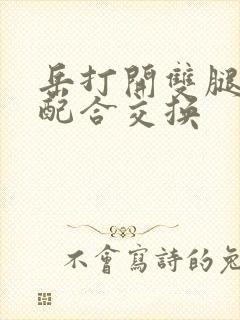 岳打開雙腿
配合交換
不會寫詩的兔